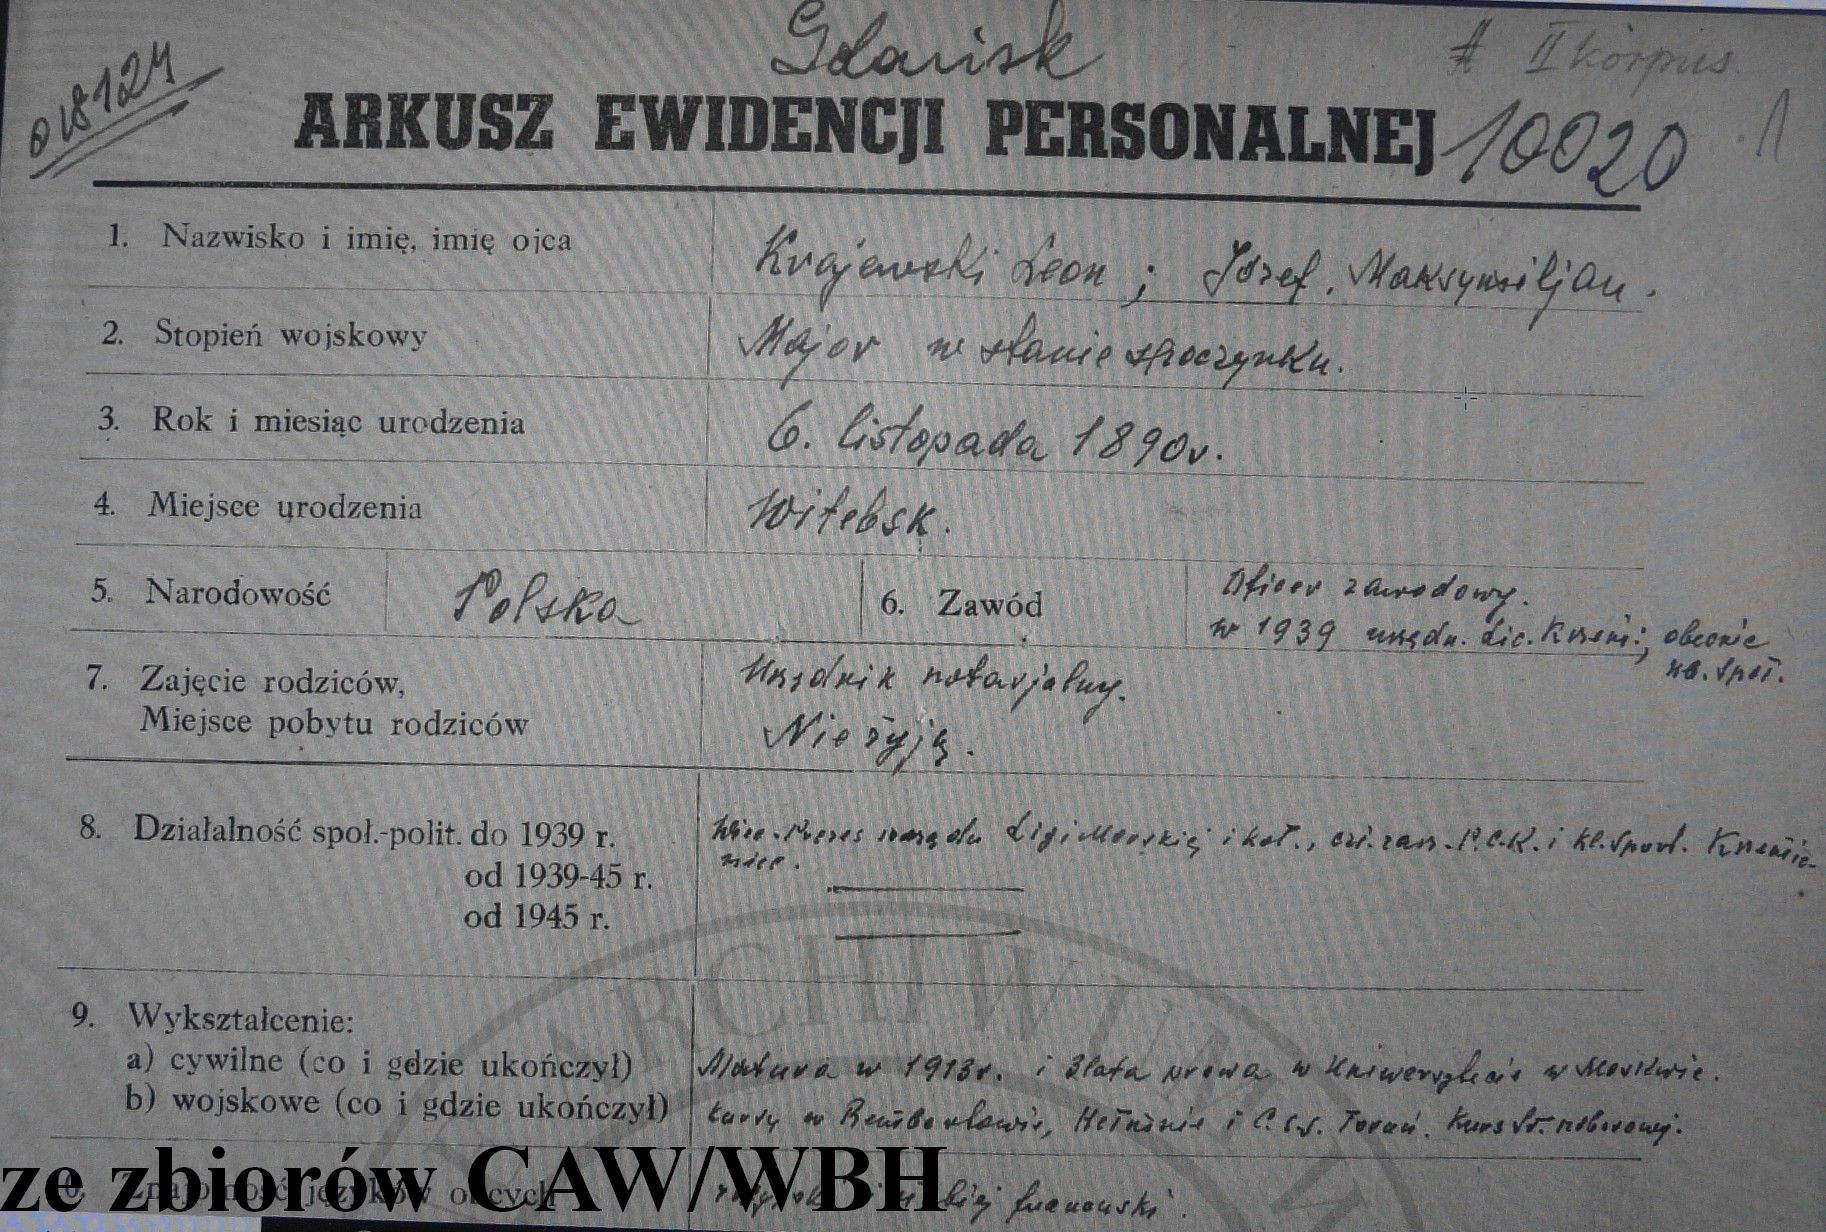 Gdańsk
II korpus
018124
ARKUSZ EWIDENCJI PERSONALNEJ 10020
1
1. Nazwisko i imię, imię ojca Krajewski Leon ; Józef, Maksymiljan.
2. Stopień wojskowy Major w stanie spoczynku.
3. Rok i miesiąc urodzenia 6. listopada 1890 r.
4. Miejsce urodzenia Witebsk.
5. Narodowość Polska 6. Zawód Oficer zawodowy.
w 1939 urzędn. Lic. Krzem.; obecnie
sp.
7. Zajęcie rodziców, Urzędnik notarjalny.
Miejsce pobytu rodziców Nie żyją.
8. Działalność społ.-polit. do 1939 r. Wice-Prezes zarządu Ligi Morskiej i kol., czł. zarz. P.C.K. i kl. Sport. Krzemie-
niec.
od 1939-45 r.
od 1945 r.
ARCHIWUM
9. Wykształcenie:
a) cywilne (co i gdzie ukończył) Matura w 1913 r. i 3 lata prawa w Uniwersytecie w Moskwie.
b) wojskowe (co i gdzie ukończył) Kursy w Rembertowie, Chełmnie i Toruń. Kurs
ze zbiorów CAW/WBH
Znajomość języków obcych francuski.